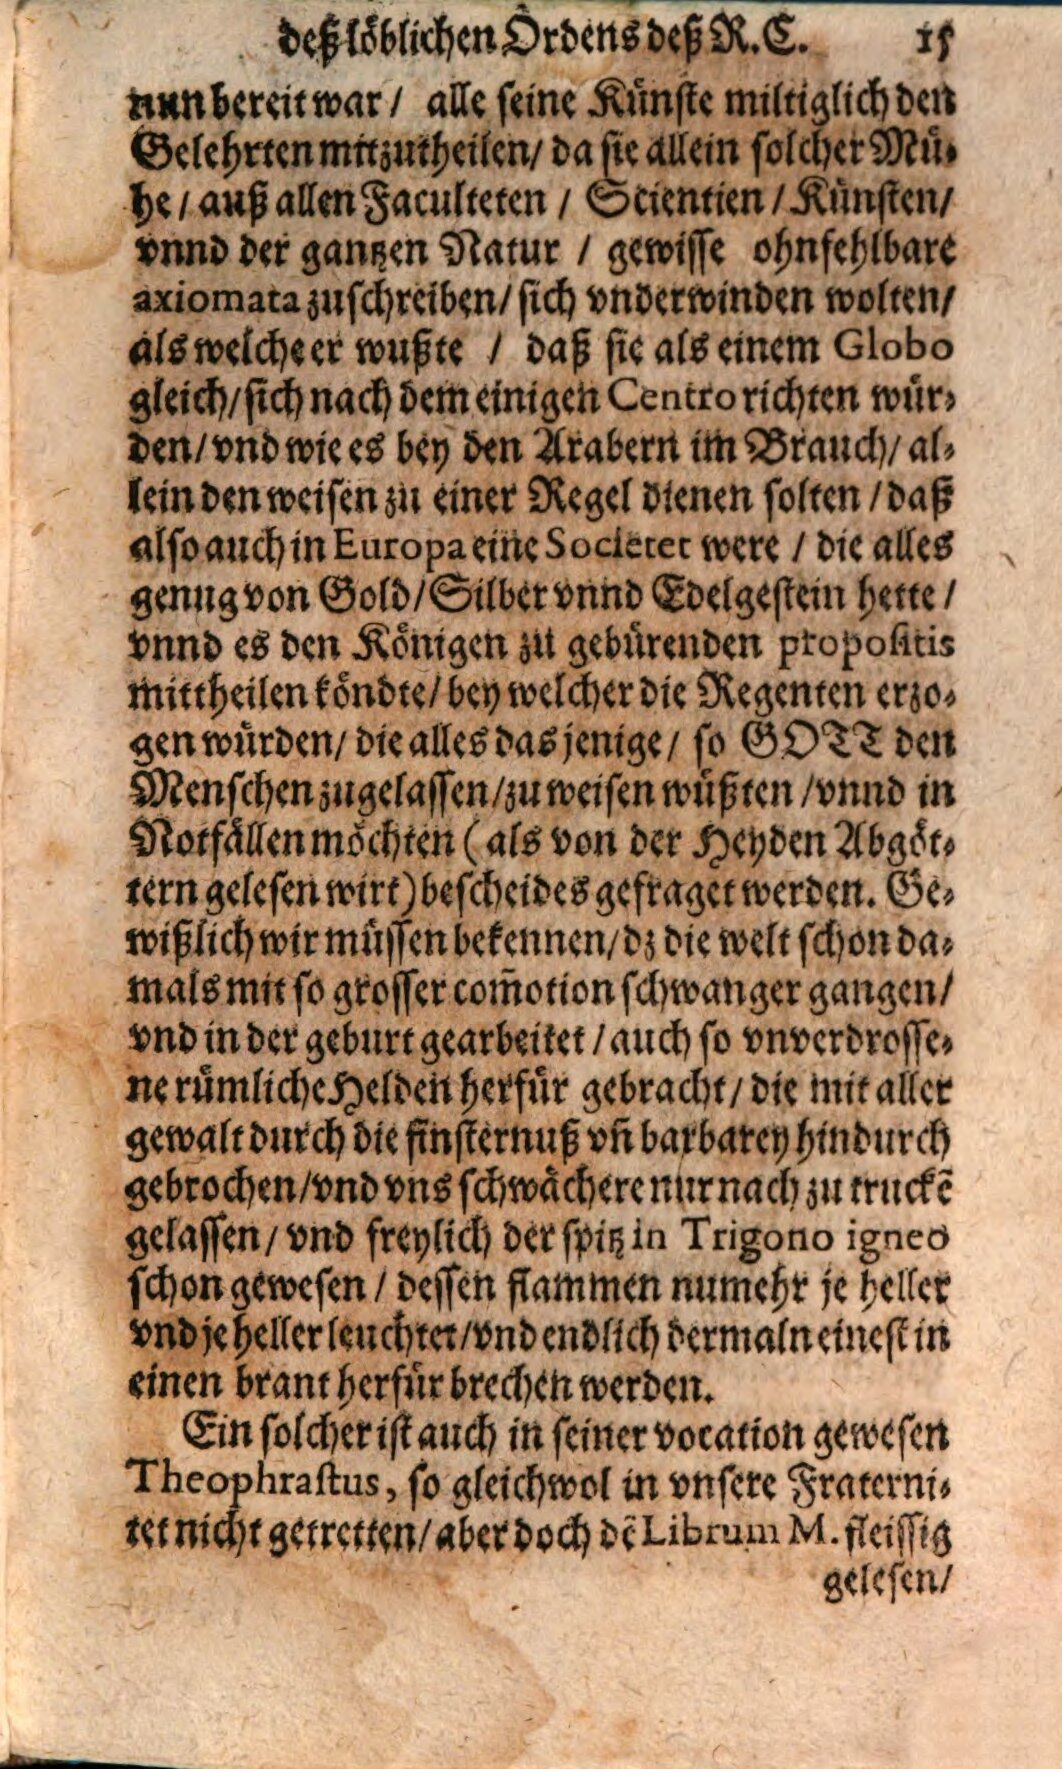 deß löblichen Ordens deß R. C. 15
nun bereit war / alle seine Künste miltiglich den
Gelehrten mitzutheilen / da sie allein solcher Mü⸗
he / auß allen Faculteten / Scientien / Künsten /
vnnd der gantzen Natur / gewisse ohnfehlbare
axiomata zuschreiben / sich vnderwinden wolten /
als welche er wußte / daß sie als einem Globo
gleich / sich nach dem einigen Centro richten wür⸗
den / vnd wie es bey den Arabern im Brauch / al⸗
lein den weisen zu einer Regel dienen solten / daß
also auch in Europa eine Societet were / die alles
genug von Gold / Silber vnnd Edelgestein hette /
vnnd es den Königen zu gebürenden propositis
mittheilen köndte / bey welcher die Regenten erzo⸗
gen würden / die alles das jenige / so GOTT den
Menschen zugelassen / zu weisen wüßten / vnnd in
Notfällen möchten (als von der Heyden Abgöt⸗
tern gelesen wirt) bescheides gefraget werden. Ge⸗
wißlich wir müssen bekennen / dz die welt schon da⸗
mals mit so grosser com̃otion schwanger gangen /
vnd in der geburt gearbeitet / auch so vnverdrosse⸗
ne rümliche Helden herfür gebracht / die mit aller
gewalt durch die finsternuß vñ barbarey hindurch
gebrochen / vnd vns schwächere nur nach zu truckẽ
gelassen / vnd freylich der spitz in Trigono igneo
schon gewesen / dessen flammen numehr je heller
vnd je heller leuchtet / vnd endlich dermaln einest in
einen brant herfür brechen werden.
Ein solcher ist auch in seiner vocation gewesen
Theophrastus, so gleichwol in vnsere Fraterni⸗
tet nicht getretten / aber doch dẽ Librum M. fleissig
gelesen /